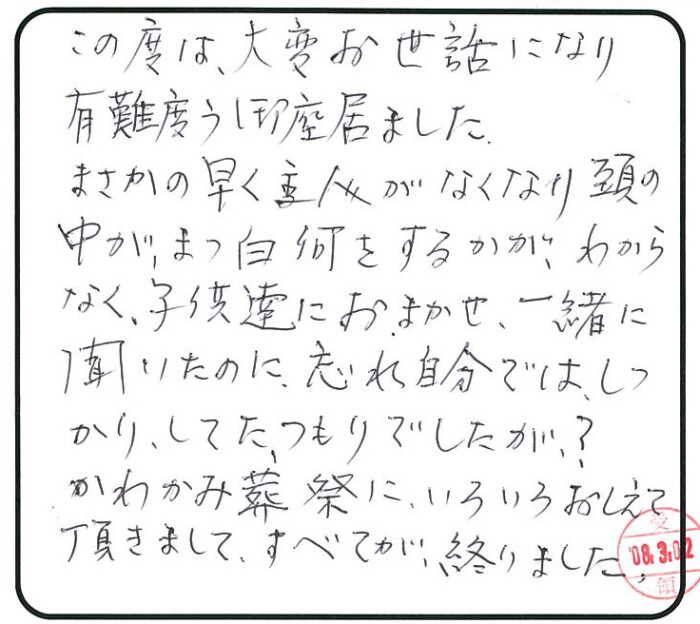 この度は、大変お世話になり
有難度う御座居ました。
まさかの早く主人がなくなり頭の
中が、まっ白何をするかが、わから
なく、子供達におまかせ、一緒に
聞いたのに、忘れ自分では、しっ
かり、してた、つもりでしたが、?
かわかみ葬祭に、いろいろおしえて
頂きまして、すべてが、終りました、
受
'08.3.02
領